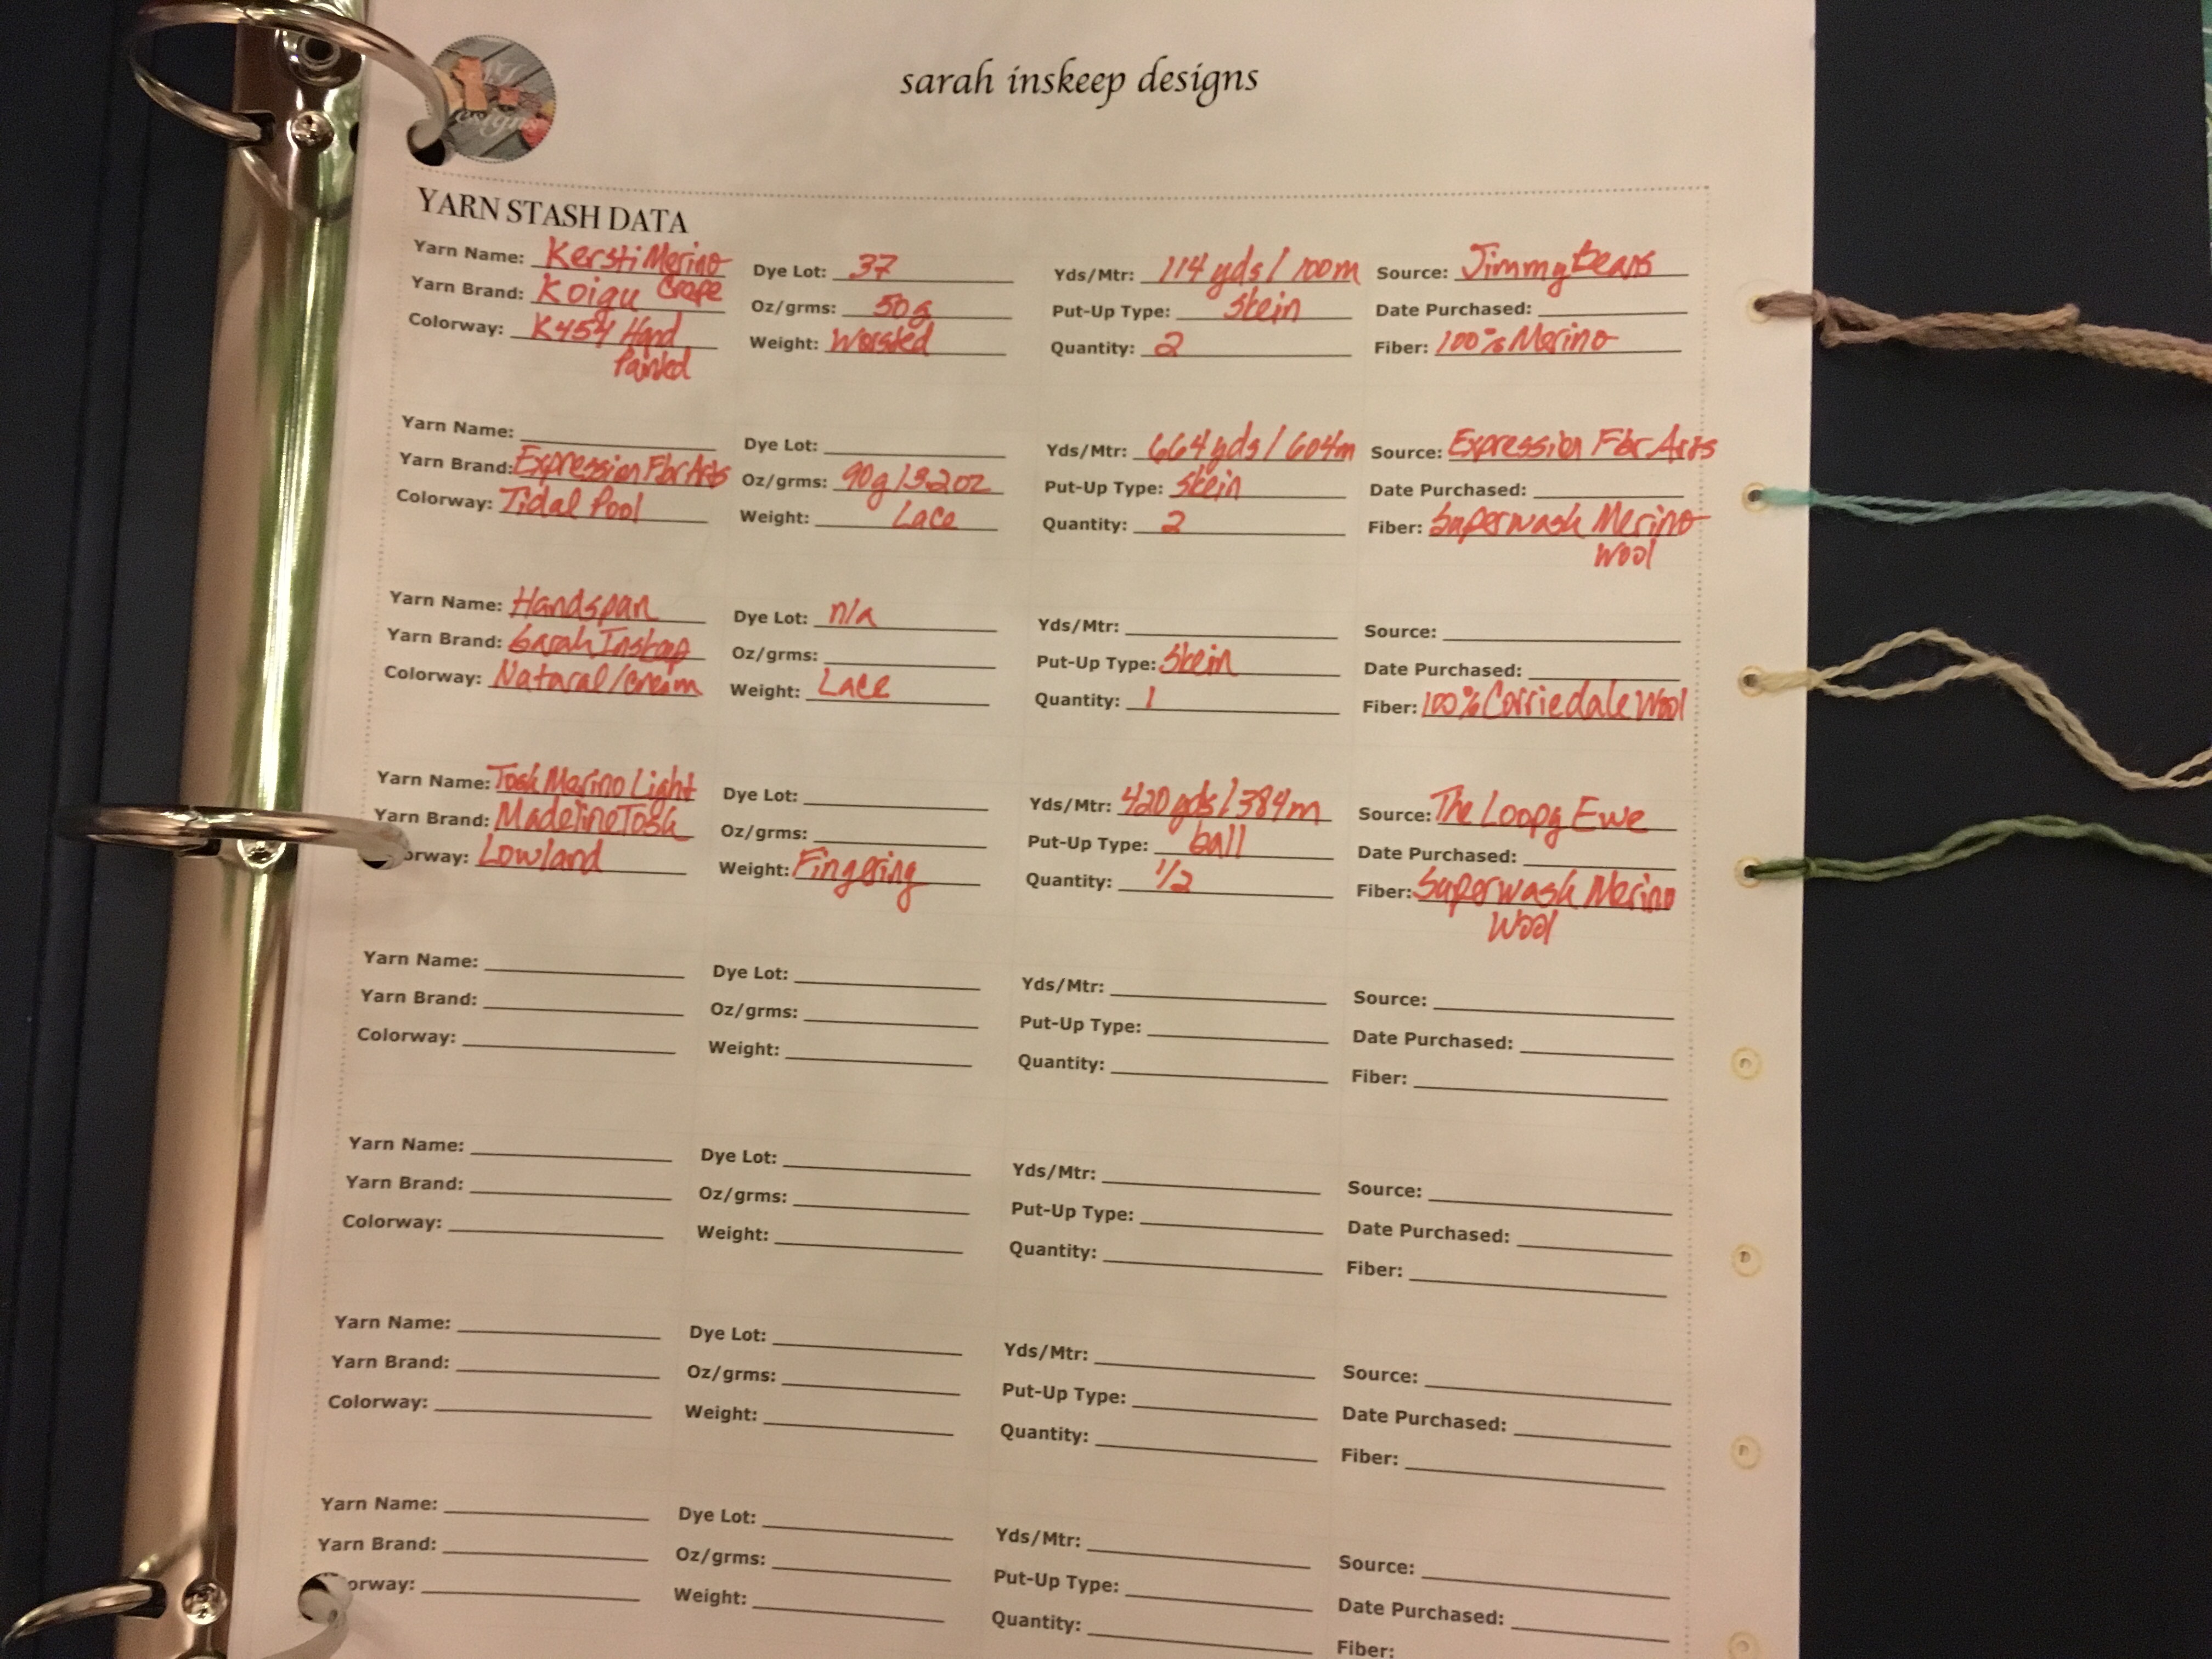 sarah inskeep designs
YARN STASH DATA
Yarn Name: Kersti Merino Crepe Dye Lot: 37 Yds/Mtr: 114 yds / 100m Source: Jimmy Beans
Yarn Brand: Koigu Oz/grms: 50g Put-Up Type: Skein Date Purchased:
Colorway: K454 Hand Painted Weight: Worsted Quantity: 2 Fiber: 100% Merino
Yarn Name: Dye Lot: Yds/Mtr: 664 yds / 604m Source: Expression Fbr Arts
Yarn Brand: Expression Fbr Arts Oz/grms: 90g / 3.2oz Put-Up Type: Skein Date Purchased:
Colorway: Tidal Pool Weight: Lace Quantity: 2 Fiber: Superwash Merino
Wool
Yarn Name: Handspun Dye Lot: n/a Yds/Mtr: Source:
Yarn Brand: Sarah Inskeep Oz/grms: Put-Up Type: Skein Date Purchased:
Colorway: Natural/Cream Weight: Lace Quantity: 1 Fiber: 100% Corriedale Wool
Yarn Name: Tosh Merino Light Dye Lot: Yds/Mtr: 420 yds / 384m Source: The Loopy Ewe
Yarn Brand: MadelineTosh Oz/grms: Put-Up Type: ball Date Purchased:
orway: Lowland Weight: Fingering Quantity: 1/2 Fiber: Superwash Merino
Wool
Yarn Name: Dye Lot: Yds/Mtr: Source:
Yarn Brand: Oz/grms: Put-Up Type: Date Purchased:
Colorway: Weight: Quantity: Fiber:
Yarn Name: Dye Lot: Yds/Mtr: Source:
Yarn Brand: Oz/grms: Put-Up Type: Date Purchased:
Colorway: Weight: Quantity: Fiber:
Yarn Name: Dye Lot: Yds/Mtr: Source:
Yarn Brand: Oz/grms: Put-Up Type: Date Purchased:
Colorway: Weight: Quantity: Fiber:
Yarn Name: Dye Lot: Yds/Mtr: Source:
Yarn Brand: Oz/grms: Put-Up Type: Date Purchased:
orway: Weight: Quantity: Fiber: